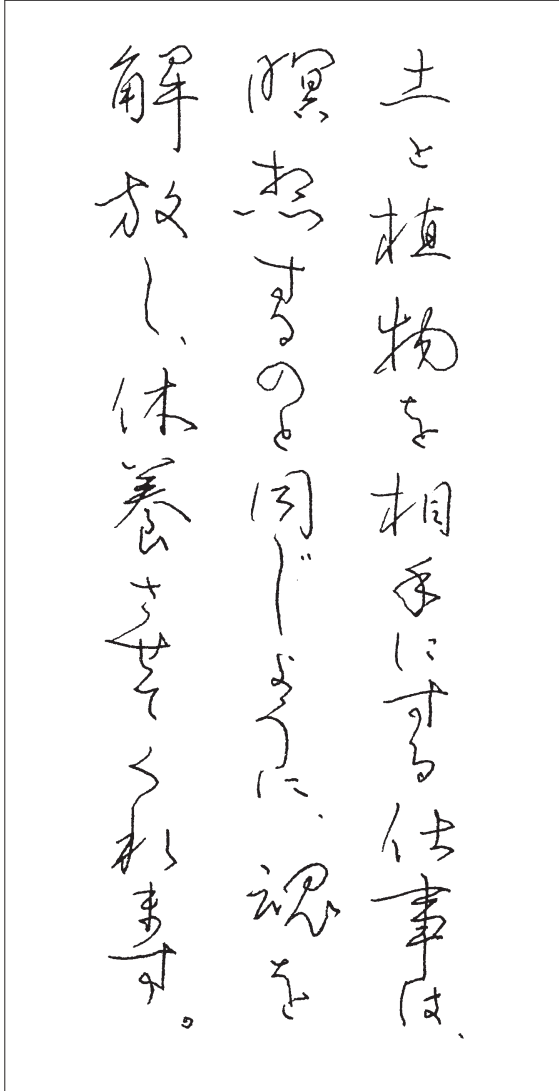 土と植物を相手にする仕事は、
瞑想するのと同じように、魂を
解放し、休養させてくれます。